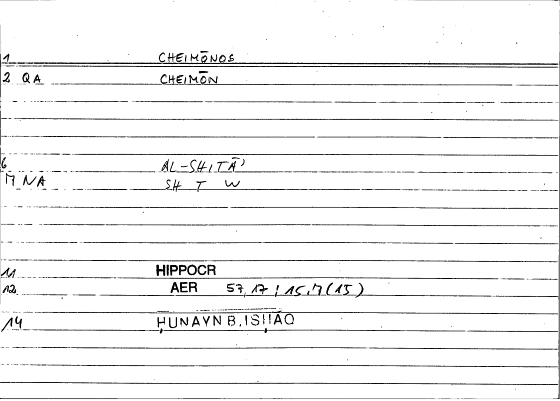 1 CHEIMŌNOS
2 QA CHEIMŌN
6 AL-SHITĀʾ
7 NA SH T W
11 HIPPOCR
12 AER 57,17 ; 15,7 (15)
14 ḤUNAYN B. ISḤĀQ